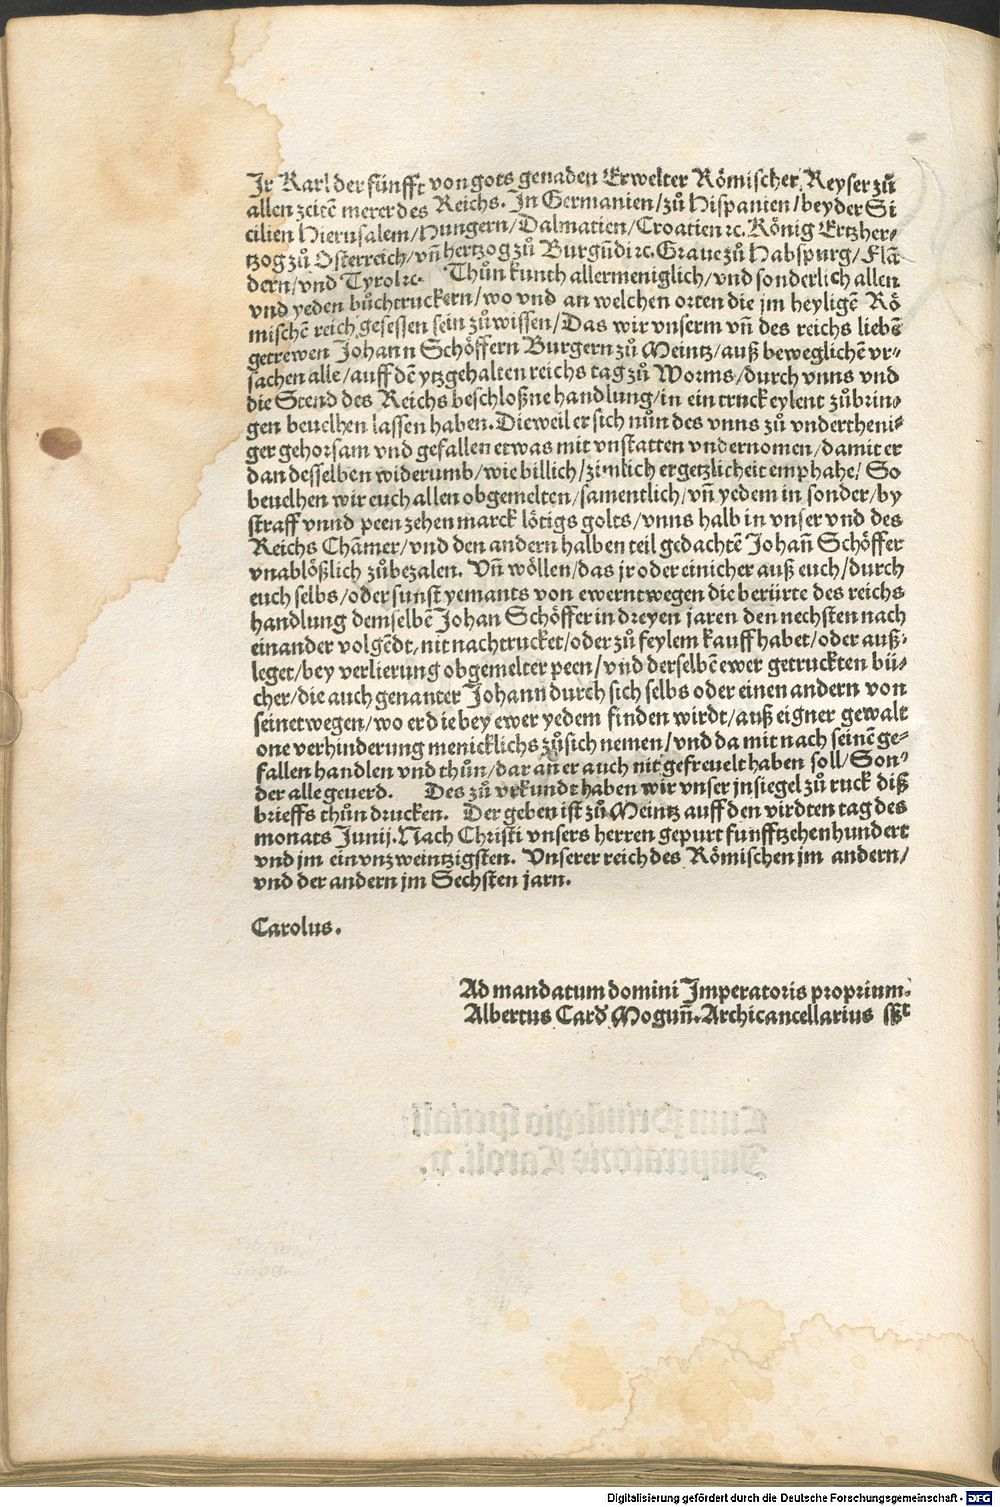 Jr Karl der fünfft von gots genaden Erwelter Römischer Keyser zů
allen zeitẽ merer des Reichs. Jn Germanien/zů Hispanien/beyder Si
cilien Hierusalem/Hungern/Dalmatien/Croatien ꝛc. König Ertzher⸗
tzog zů Osterreich/vñ hertzog zů Burgũdi ꝛc. Graue zů Habspurg/Flã
dern/vnd Tyrol ꝛc. Thůn kunth allermeniglich/vnd sonderlich allen
vnd yeden bůchtruckern/wo vnd an welchen orten die jm heyligẽ Rö
mischẽ reich gesessen sein zůwissen/Das wir vnserm vñ des reichs liebẽ
getrewen Johann Schöffern Burgern zů Meintz/auß beweglichẽ vr⸗
sachen alle/auff dẽ ytzgehalten reichs tag zů Worms/durch vnns vnd
die Stend des Reichs beschloßne handlung/in ein truck eylent zůbrin⸗
gen beuelhen lassen haben. Dieweil er sich nůn des vnns zů vndertheni⸗
ger gehorsam vnd gefallen etwas mit vnstatten vndernomen/damit er
dan desselben widerumb/wie billich/zimlich ergetzlicheit emphahe/ So
beuelhen wir euch allen obgemelten/samentlich/vñ yedem in sonder/by
straff vnnd peen zehen marck lötigs golts/vnns halb in vnser vnd des
Reichs Chãmer/vnd den andern halben teil gedachtẽ Johañ Schöffer
vnablößlich zůbezalen. Vñ wöllen/das jr oder einicher auß euch/durch
euch selbs/oder sunst yemants von ewerntwegen die berürte des reichs
handlung demselbẽ Johan Schöffer in dreyen jaren den nechsten nach
einander volgẽdt, nit nachtrucket/oder zů feylem kauff habet/oder auß⸗
leget/bey verlierung obgemelter peen/vnd derselbẽ ewer getruckten bü⸗
cher/die auch genanter Johann durch sich selbs oder einen andern von
seinetwegen/wo er die bey ewer yedem finden wirdt/auß eigner gewalt
one verhinderung menicklichs zůsich nemen/vnd da mit nach seinẽ ge⸗
fallen handlen vnd thůn/dar an er auch nit gefreuelt haben soll/Son⸗
der alle geuerd. Des zů vrkundt haben wir vnser jnsiegel zů ruck diß
brieffs thůn drucken. Der geben ist zů Meintz auff den virdten tag des
monats Junij. Nach Christi vnsers herren gepurt funfftzehenhundert
vnd jm ein vnzweintzigsten. Vnserer reich des Römischen jm andern/
vnd der andern jm Sechsten jarn.
Carolus.
Ad mandatum domini Jmperatoris proprium.
Albertus Card Moguñ. Archicancellarius
Cum Priuilegio speciali
Jmperatoris Caroli. v.
Digitalisierung gefördert durch die Deutsche Forschungsgemeinschaft - DFG